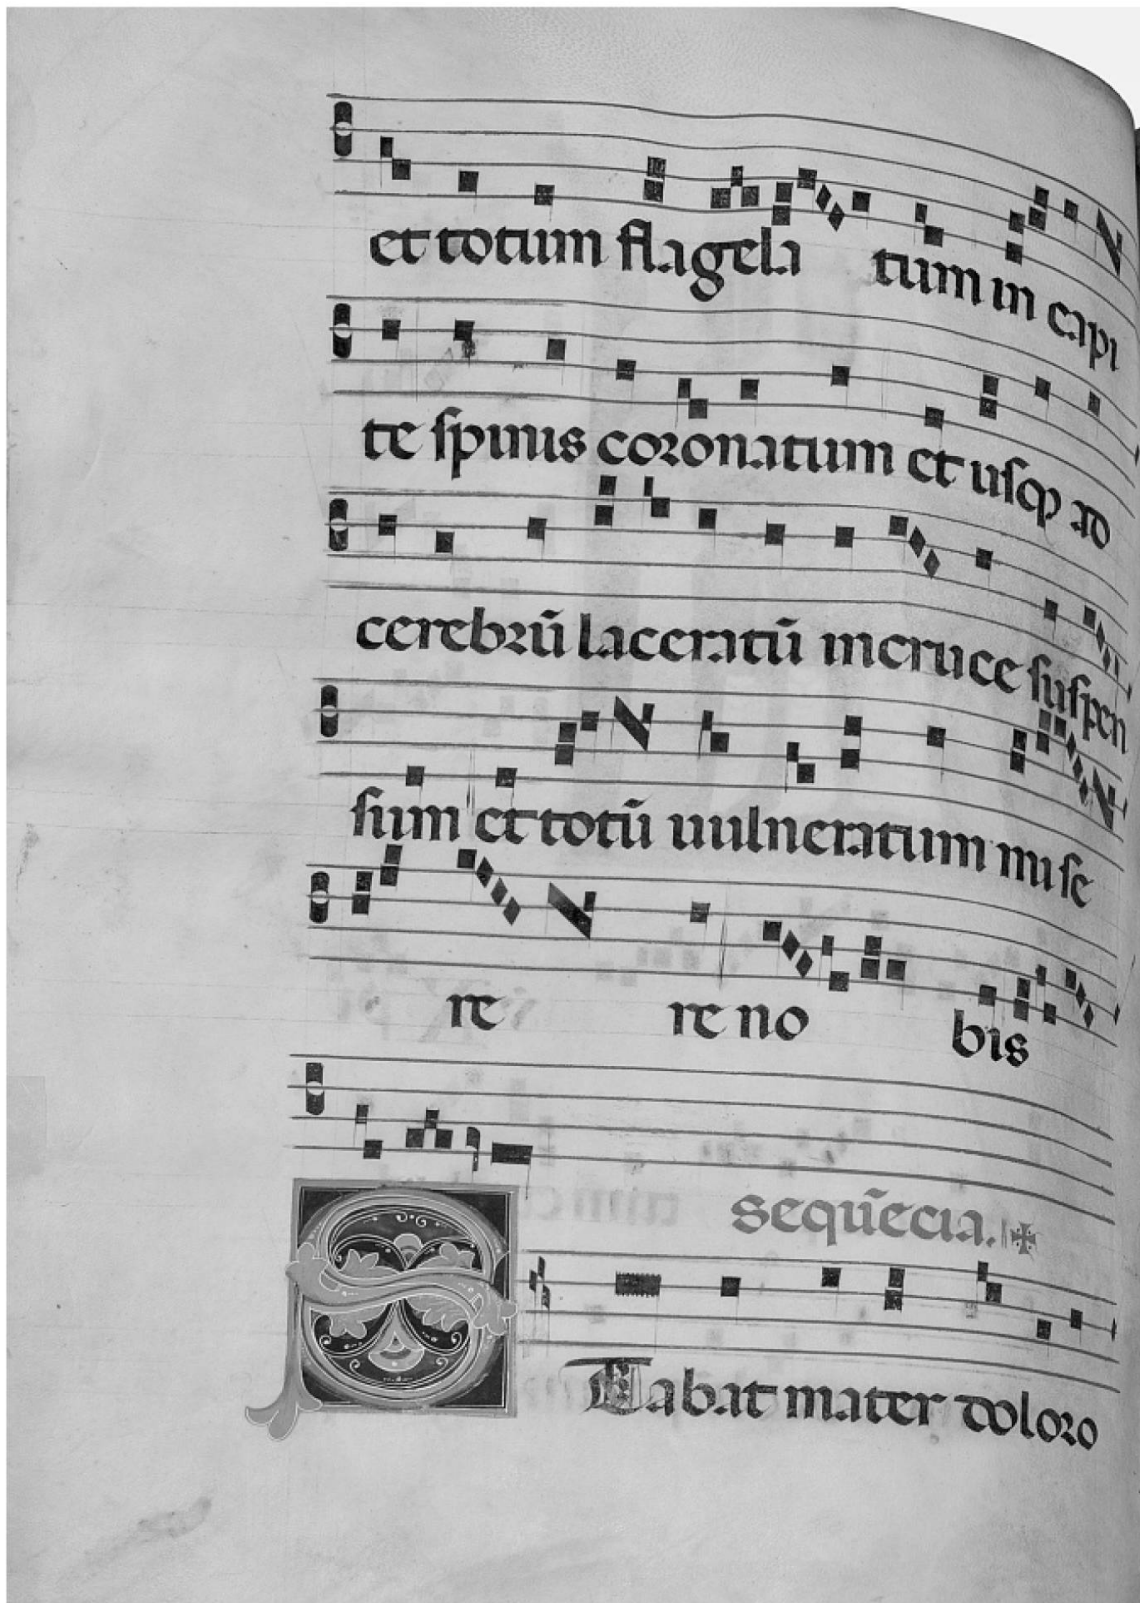 et totum flagela tum in capi
te spinis coronatum et usq ad
cerebrū laceratū in cruce suspen
sum et totū uulneratum mise
re re no bis
sequēcia.
Stabat mater doloro